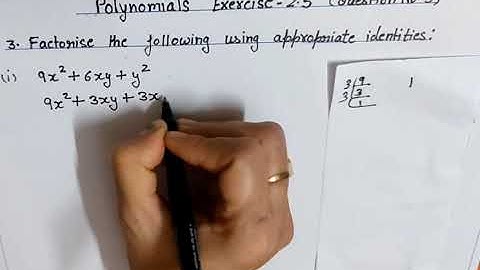 Polynomials Exercise-2.5 (Question No-3)
3. Factorise the following using appropriate identities:
(i) 9x² + 6xy + y²
9x² + 3xy + 3x
3 9
3 3
1
1